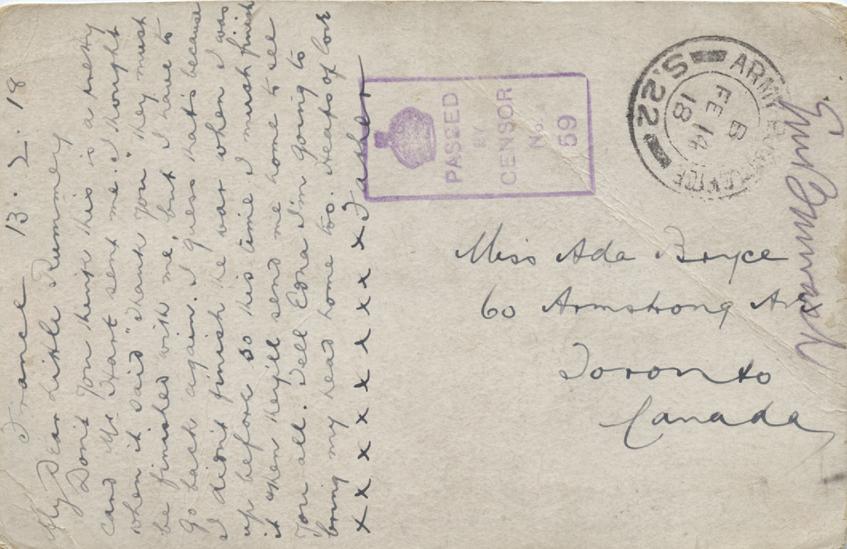 France 13.2.18
My Dear Little
Don't you think this is a pretty
card Mr Hart sent me. I thought
when it said "Thank You" they must
be finished with me, but I have to
go back again. I guess that's because
I didnt finish the war when I was
up before so this time I must finish
it then they'll send me home to see
you all. Tell Edna I'm going to
bring my head home too. Heaps of love
x x x x x x x x x x Father
PASSED
BY
CENSOR
No.
59
ARMY
S.22
B
FE 14
18
Miss Ada Bryce
60 Armstrong Ave
Toronto
Canada